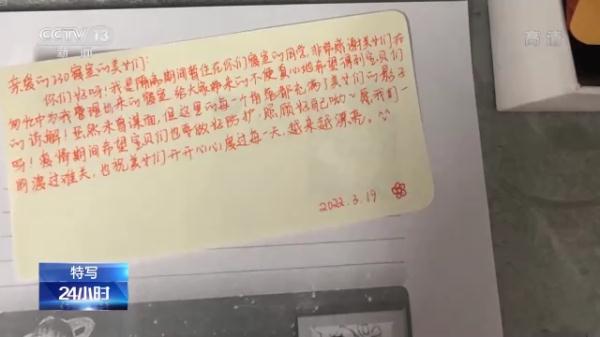 CCTV 13
新闻
高清
亲爱的230寝室的美女们:
你们好呀!我是隔离期间暂住在你们寝室的同学,非常感谢美女们在
匆忙中为我整理出来的寝室 给大家带来的不便真心地希望得到宝贝们
的谅解!虽然未曾谋面,但这里的每一个角落都充满了美女们的影子
哟!疫情期间希望宝贝们也要做好防护,照顾好自己呦~ 愿我们一
同渡过难关,也祝美女们开开心心度过每一天,越来越漂亮。
2022.3.19
特写
24小时